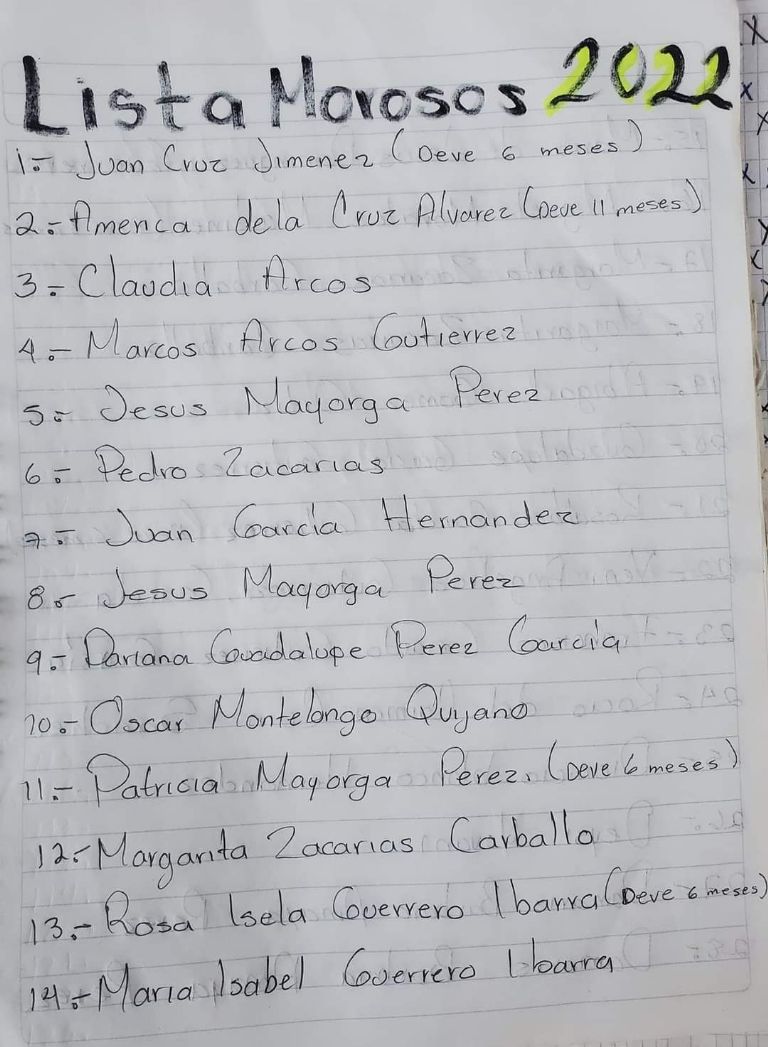 Lista Morosos 2022
1.- Juan Cruz Jimenez (Deve 6 meses)
2.- America de la Cruz Alvarez (Deve 11 meses)
3.- Claudia Arcos
4.- Marcos Arcos Gutierrez
5.- Jesus Mayorga Perez
6.- Pedro Zacarias
7.- Juan Garcia Hernandez
8.- Jesus Mayorga Perez
9.- Dariana Guadalupe Perez Garcia
10.- Oscar Montelongo Quijano
11.- Patricia Mayorga Perez. (Deve 6 meses)
12.- Margarita Zacarias Carballo
13.- Rosa Isela Guerrero Ibarra (Deve 6 meses)
14.- Maria Isabel Guerrero Ibarra